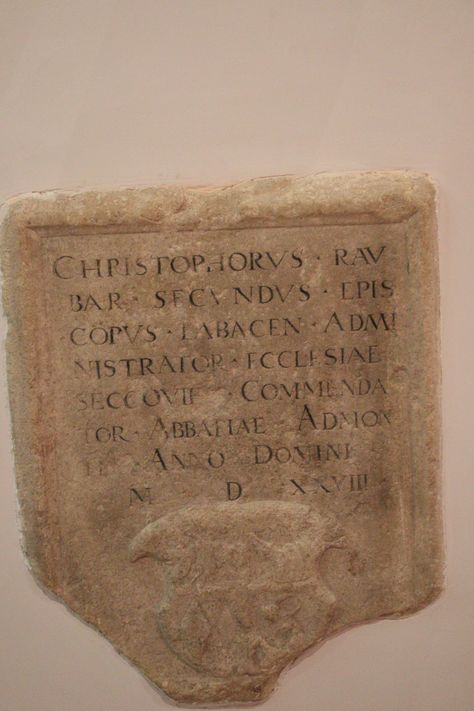 CHRISTOPHORVS · RAV
BAR · SECVNDVS · EPIS
CŌPVS · LABACEN · ADMI
NISTRATOR · ECCLESIAE
SECCOVIE · COMMENDA
TOR · ABBATIAE · ADMON
· ANNO · DOMINI
M D XXVIII